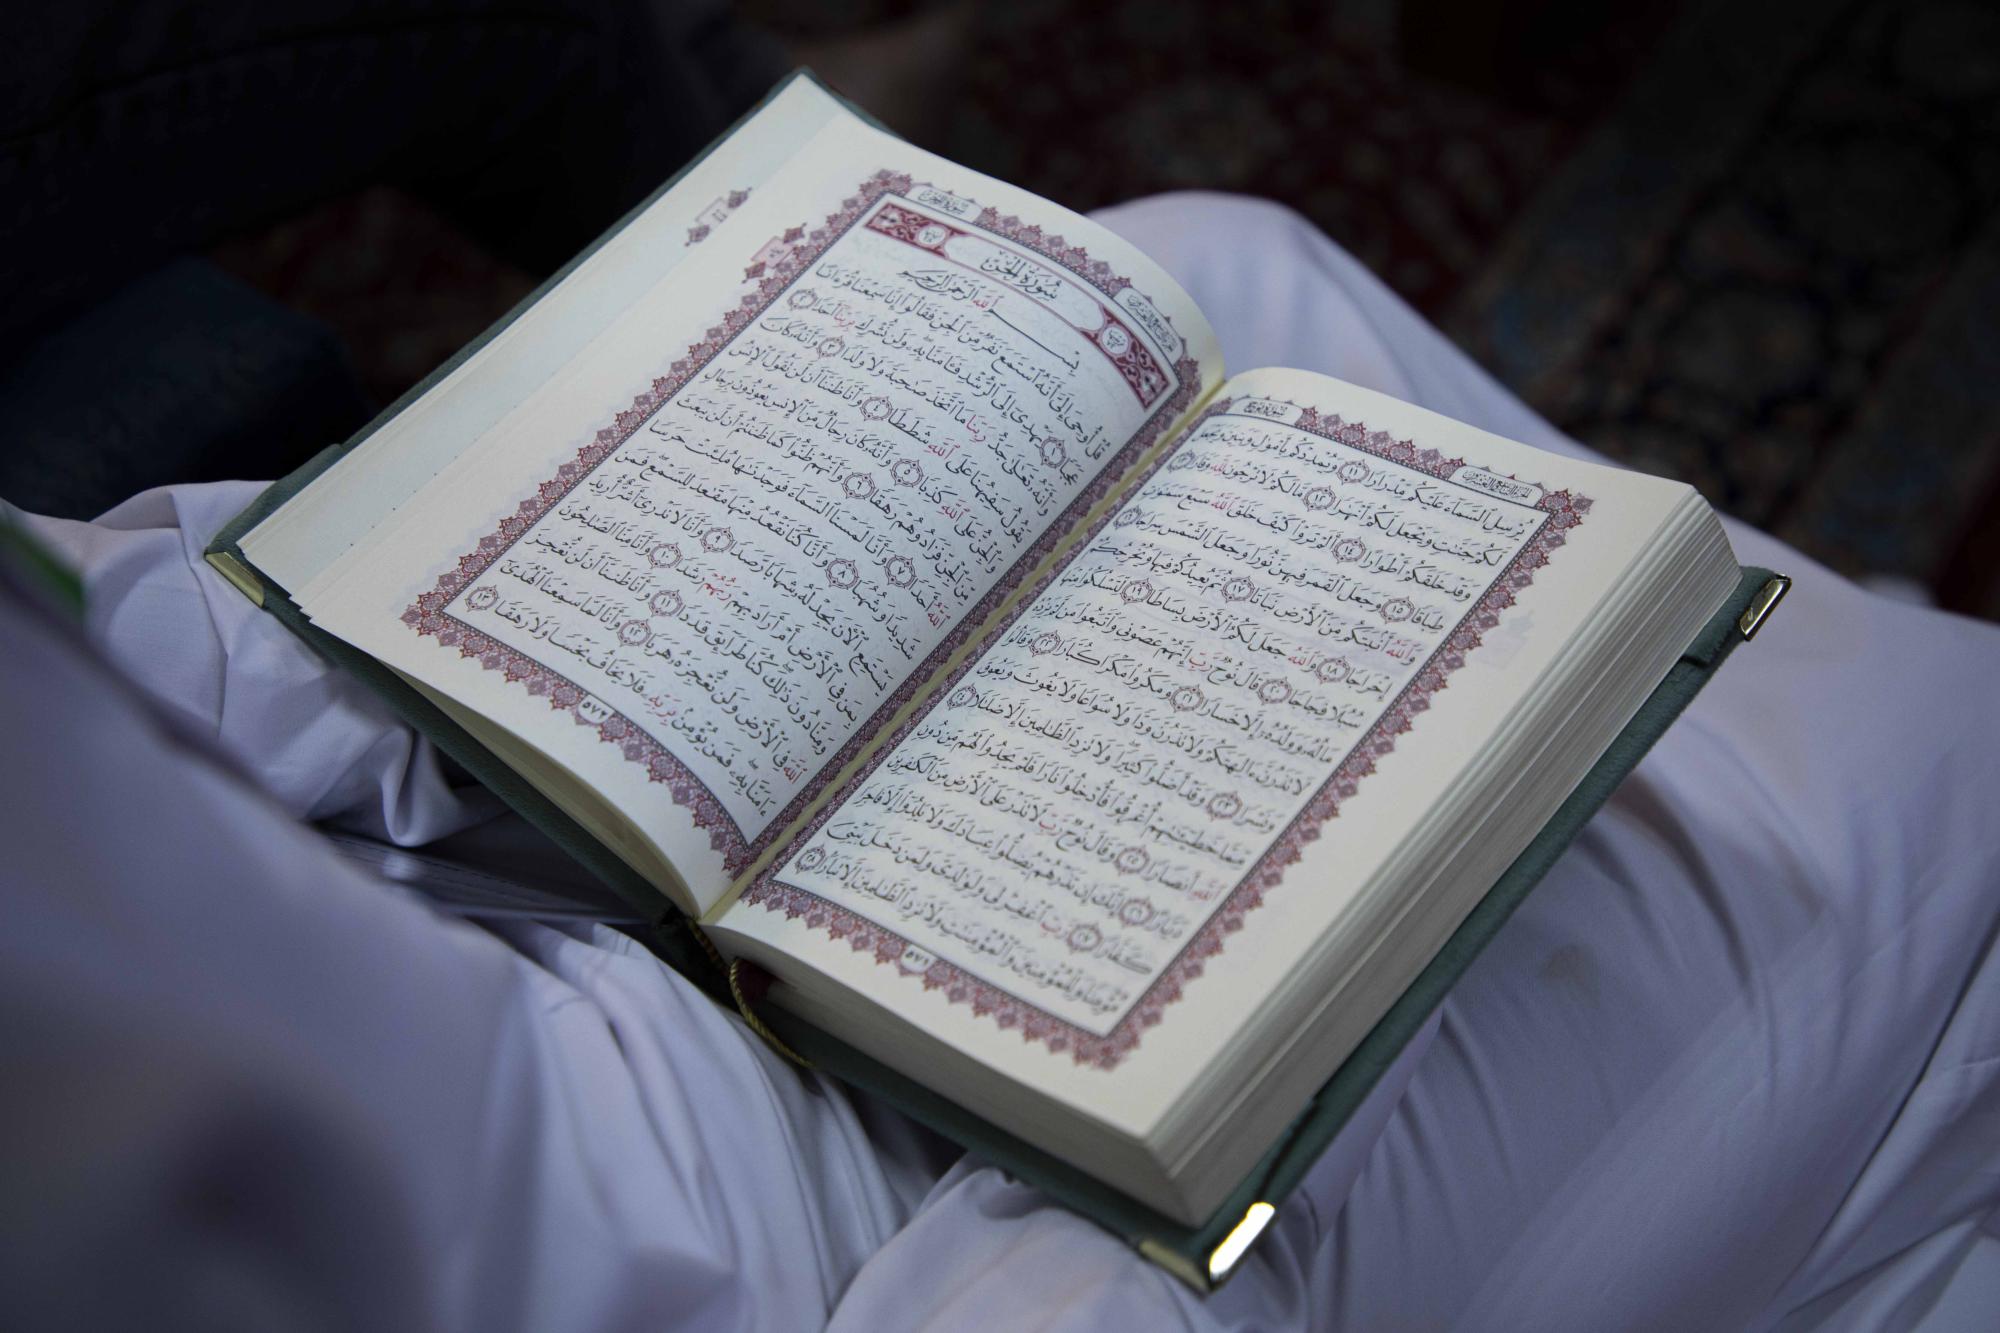 سُورَةُ نُوحٍ الجُزْءُ التَّاسِعُ وَالعِشْرُونَ
يُرْسِلِ ٱلسَّمَآءَ عَلَيْكُم مِّدْرَارًا ١١ وَيُمْدِدْكُم بِأَمْوَٰلٍ وَبَنِينَ وَيَجْعَل
لَّكُمْ جَنَّٰتٍ وَيَجْعَل لَّكُمْ أَنْهَٰرًا ١٢ مَّا لَكُمْ لَا تَرْجُونَ لِلَّهِ وَقَارًا ١٣
وَقَدْ خَلَقَكُمْ أَطْوَارًا ١٤ أَلَمْ تَرَوْا۟ كَيْفَ خَلَقَ ٱللَّهُ سَبْعَ سَمَٰوَٰتٍ
طِبَاقًا ١٥ وَجَعَلَ ٱلْقَمَرَ فِيهِنَّ نُورًا وَجَعَلَ ٱلشَّمْسَ سِرَاجًا ١٦
وَٱللَّهُ أَنۢبَتَكُم مِّنَ ٱلْأَرْضِ نَبَاتًا ١٧ ثُمَّ يُعِيدُكُمْ فِيهَا وَيُخْرِجُكُمْ
إِخْرَاجًا ١٨ وَٱللَّهُ جَعَلَ لَكُمُ ٱلْأَرْضَ بِسَاطًا ١٩ لِّتَسْلُكُوا۟ مِنْهَا
سُبُلًا فِجَاجًا ٢٠ قَالَ نُوحٌ رَّبِّ إِنَّهُمْ عَصَوْنِى وَٱتَّبَعُوا۟ مَن لَّمْ يَزِدْهُ
مَالُهُۥ وَوَلَدُهُۥٓ إِلَّا خَسَارًا ٢١ وَمَكَرُوا۟ مَكْرًا كُبَّارًا ٢٢ وَقَالُوا۟
لَا تَذَرُنَّ ءَالِهَتَكُمْ وَلَا تَذَرُنَّ وَدًّا وَلَا سُوَاعًا وَلَا يَغُوثَ وَيَعُوقَ
وَنَسْرًا ٢٣ وَقَدْ أَضَلُّوا۟ كَثِيرًا ۖ وَلَا تَزِدِ ٱلظَّٰلِمِينَ إِلَّا ضَلَٰلًا ٢٤
مِّمَّا خَطِيٓـَٰٔتِهِمْ أُغْرِقُوا۟ فَأُدْخِلُوا۟ نَارًا فَلَمْ يَجِدُوا۟ لَهُم مِّن دُونِ
ٱللَّهِ أَنصَارًا ٢٥ وَقَالَ نُوحٌ رَّبِّ لَا تَذَرْ عَلَى ٱلْأَرْضِ مِنَ ٱلْكَٰفِرِينَ
دَيَّارًا ٢٦ إِنَّكَ إِن تَذَرْهُمْ يُضِلُّوا۟ عِبَادَكَ وَلَا يَلِدُوٓا۟ إِلَّا فَاجِرًا
كَفَّارًا ٢٧ رَّبِّ ٱغْفِرْ لِى وَلِوَٰلِدَىَّ وَلِمَن دَخَلَ بَيْتِىَ
مُؤْمِنًا وَلِلْمُؤْمِنِينَ وَٱلْمُؤْمِنَٰتِ وَلَا تَزِدِ ٱلظَّٰلِمِينَ إِلَّا تَبَارًۢا ٢٨
٥٧١
الجُزْءُ التَّاسِعُ وَالعِشْرُونَ سُورَةُ الجِنِّ
سُورَةُ الجِنِّ
بِسْمِ ٱللَّهِ ٱلرَّحْمَٰنِ ٱلرَّحِيمِ
قُلْ أُوحِىَ إِلَىَّ أَنَّهُ ٱسْتَمَعَ نَفَرٌ مِّنَ ٱلْجِنِّ فَقَالُوٓا۟ إِنَّا سَمِعْنَا قُرْءَانًا
عَجَبًا ١ يَهْدِىٓ إِلَى ٱلرُّشْدِ فَـَٔامَنَّا بِهِۦ ۖ وَلَن نُّشْرِكَ بِرَبِّنَآ أَحَدًا ٢
وَأَنَّهُۥ تَعَٰلَىٰ جَدُّ رَبِّنَا مَا ٱتَّخَذَ صَٰحِبَةً وَلَا وَلَدًا ٣ وَأَنَّهُۥ كَانَ
يَقُولُ سَفِيهُنَا عَلَى ٱللَّهِ شَطَطًا ٤ وَأَنَّا ظَنَنَّآ أَن لَّن تَقُولَ ٱلْإِنسُ
وَٱلْجِنُّ عَلَى ٱللَّهِ كَذِبًا ٥ وَأَنَّهُۥ كَانَ رِجَالٌ مِّنَ ٱلْإِنسِ يَعُوذُونَ بِرِجَالٍ
مِّنَ ٱلْجِنِّ فَزَادُوهُمْ رَهَقًا ٦ وَأَنَّهُمْ ظَنُّوا۟ كَمَا ظَنَنتُمْ أَن لَّن يَبْعَثَ
ٱللَّهُ أَحَدًا ٧ وَأَنَّا لَمَسْنَا ٱلسَّمَآءَ فَوَجَدْنَٰهَا مُلِئَتْ حَرَسًا
شَدِيدًا وَشُهُبًا ٨ وَأَنَّا كُنَّا نَقْعُدُ مِنْهَا مَقَٰعِدَ لِلسَّمْعِ ۖ فَمَن
يَسْتَمِعِ ٱلْـَٔانَ يَجِدْ لَهُۥ شِهَابًا رَّصَدًا ٩ وَأَنَّا لَا نَدْرِىٓ أَشَرٌّ أُرِيدَ
بِمَن فِى ٱلْأَرْضِ أَمْ أَرَادَ بِهِمْ رَبُّهُمْ رَشَدًا ١٠ وَأَنَّا مِنَّا ٱلصَّٰلِحُونَ
وَمِنَّا دُونَ ذَٰلِكَ ۖ كُنَّا طَرَآئِقَ قِدَدًا ١١ وَأَنَّا ظَنَنَّآ أَن لَّن نُّعْجِزَ
ٱللَّهَ فِى ٱلْأَرْضِ وَلَن نُّعْجِزَهُۥ هَرَبًا ١٢ وَأَنَّا لَمَّا سَمِعْنَا ٱلْهُدَىٰٓ
ءَامَنَّا بِهِۦ ۖ فَمَن يُؤْمِنۢ بِرَبِّهِۦ فَلَا يَخَافُ بَخْسًا وَلَا رَهَقًا ١٣
٥٧٢